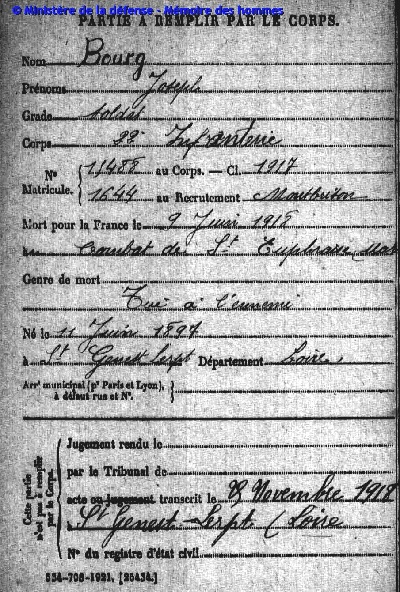 © Ministère de la défense - Mémoire des hommes
PARTIE À REMPLIR PAR LE CORPS.
Nom Bourg
Prénoms Joseph
Grade soldat
Corps 22e Infanterie
N° Matricule. 11488 au Corps. — Cl. 1917
1644 au Recrutement Montbrison
Mort pour la France le 9 Juin 1918
au Combat de St Euphraise
Genre de mort
Tué à l'ennemi
Né le 11 Juin 1897
à St Genest Lerpt Département Loire
Arrt municipal (pr Paris et Lyon), à défaut rue et N°.
Cette partie n'est pas à remplir par le Corps.
Jugement rendu le
par le Tribunal de
acte ou jugement transcrit le Novembre 1918
à St Genest-Lerpt (Loire
N° du registre d'état civil
534-708-1921. [26434.]